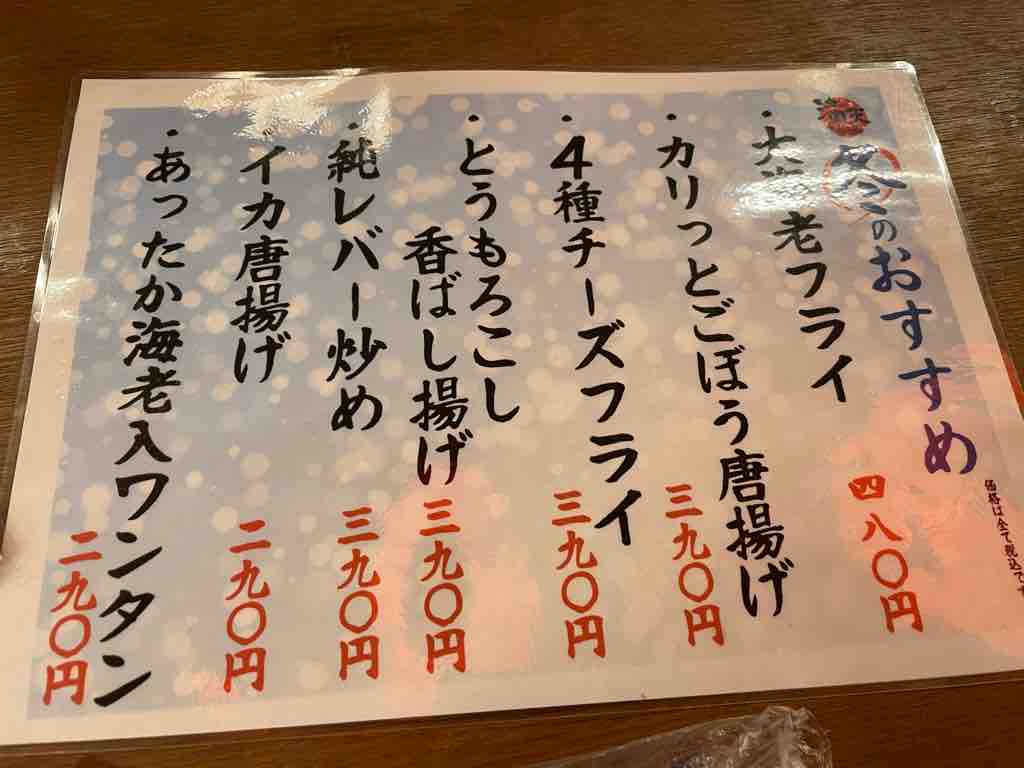 冬のおすすめ
価格は全て税込です
・大海老フライ
四八〇円
・カリっとごぼう唐揚げ
三九〇円
・4種チーズフライ
三九〇円
・とうもろこし
香ばし揚げ
三九〇円
・純レバー炒め
三九〇円
・イカ唐揚げ
二九〇円
・あったか海老入ワンタン
二九〇円